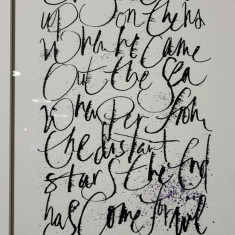 up on the
When he came
Out the sea
Whisper from
the distant
stars the End
has come for we